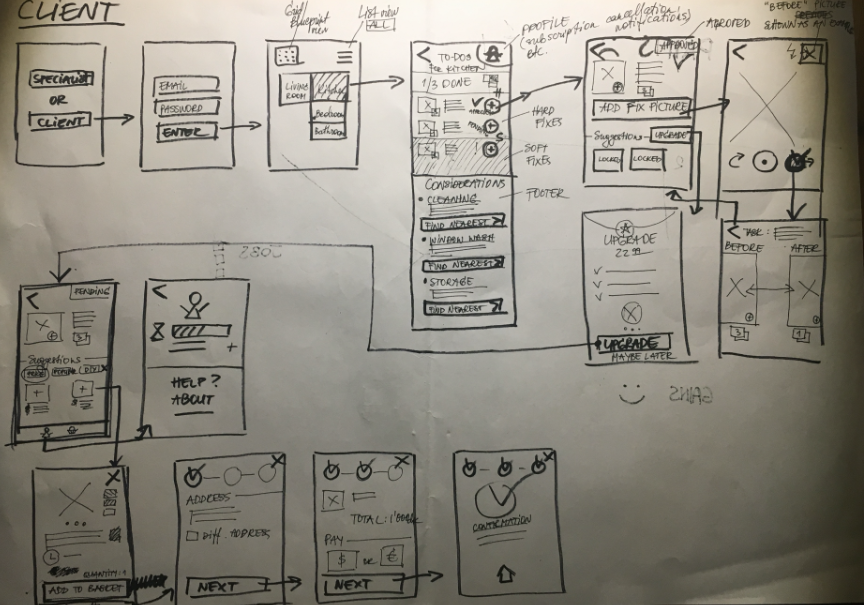 CLIENT
SPECIALIST
OR
CLIENT
EMAIL
PASSWORD
ENTER
Grid/
Blueprint
view
LIST view
ALL
LIVING
ROOM
Kitchen
Bedroom
Bathroom
PROFILE
(subscription cancellation,
notifications)
etc.
TO-DOS
FOR KITCHEN
1/3 DONE
HARD
FIXES
SOFT
FIXES
CONSIDERATIONS
CLEANING
FIND NEAREST
WINDOW WASH
FIND NEAREST
STORAGE
FIND NEAREST
FOOTER
APPROVED
ADD FIX PICTURE
Suggestions
UPGRADE
LOCKED
LOCKED
"BEFORE" PICTURE
SHOWN AS
TASK:
BEFORE
AFTER
3
1
UPGRADE
22.99
UPGRADE
MAYBE LATER
PENDING
Suggestions
HELP?
ABOUT
QUANTITY: 1
ADD TO BASKET
ADDRESS
Diff. ADDRESS
NEXT
TOTAL:
PAY
$ OR €
NEXT
CONFIRMATION